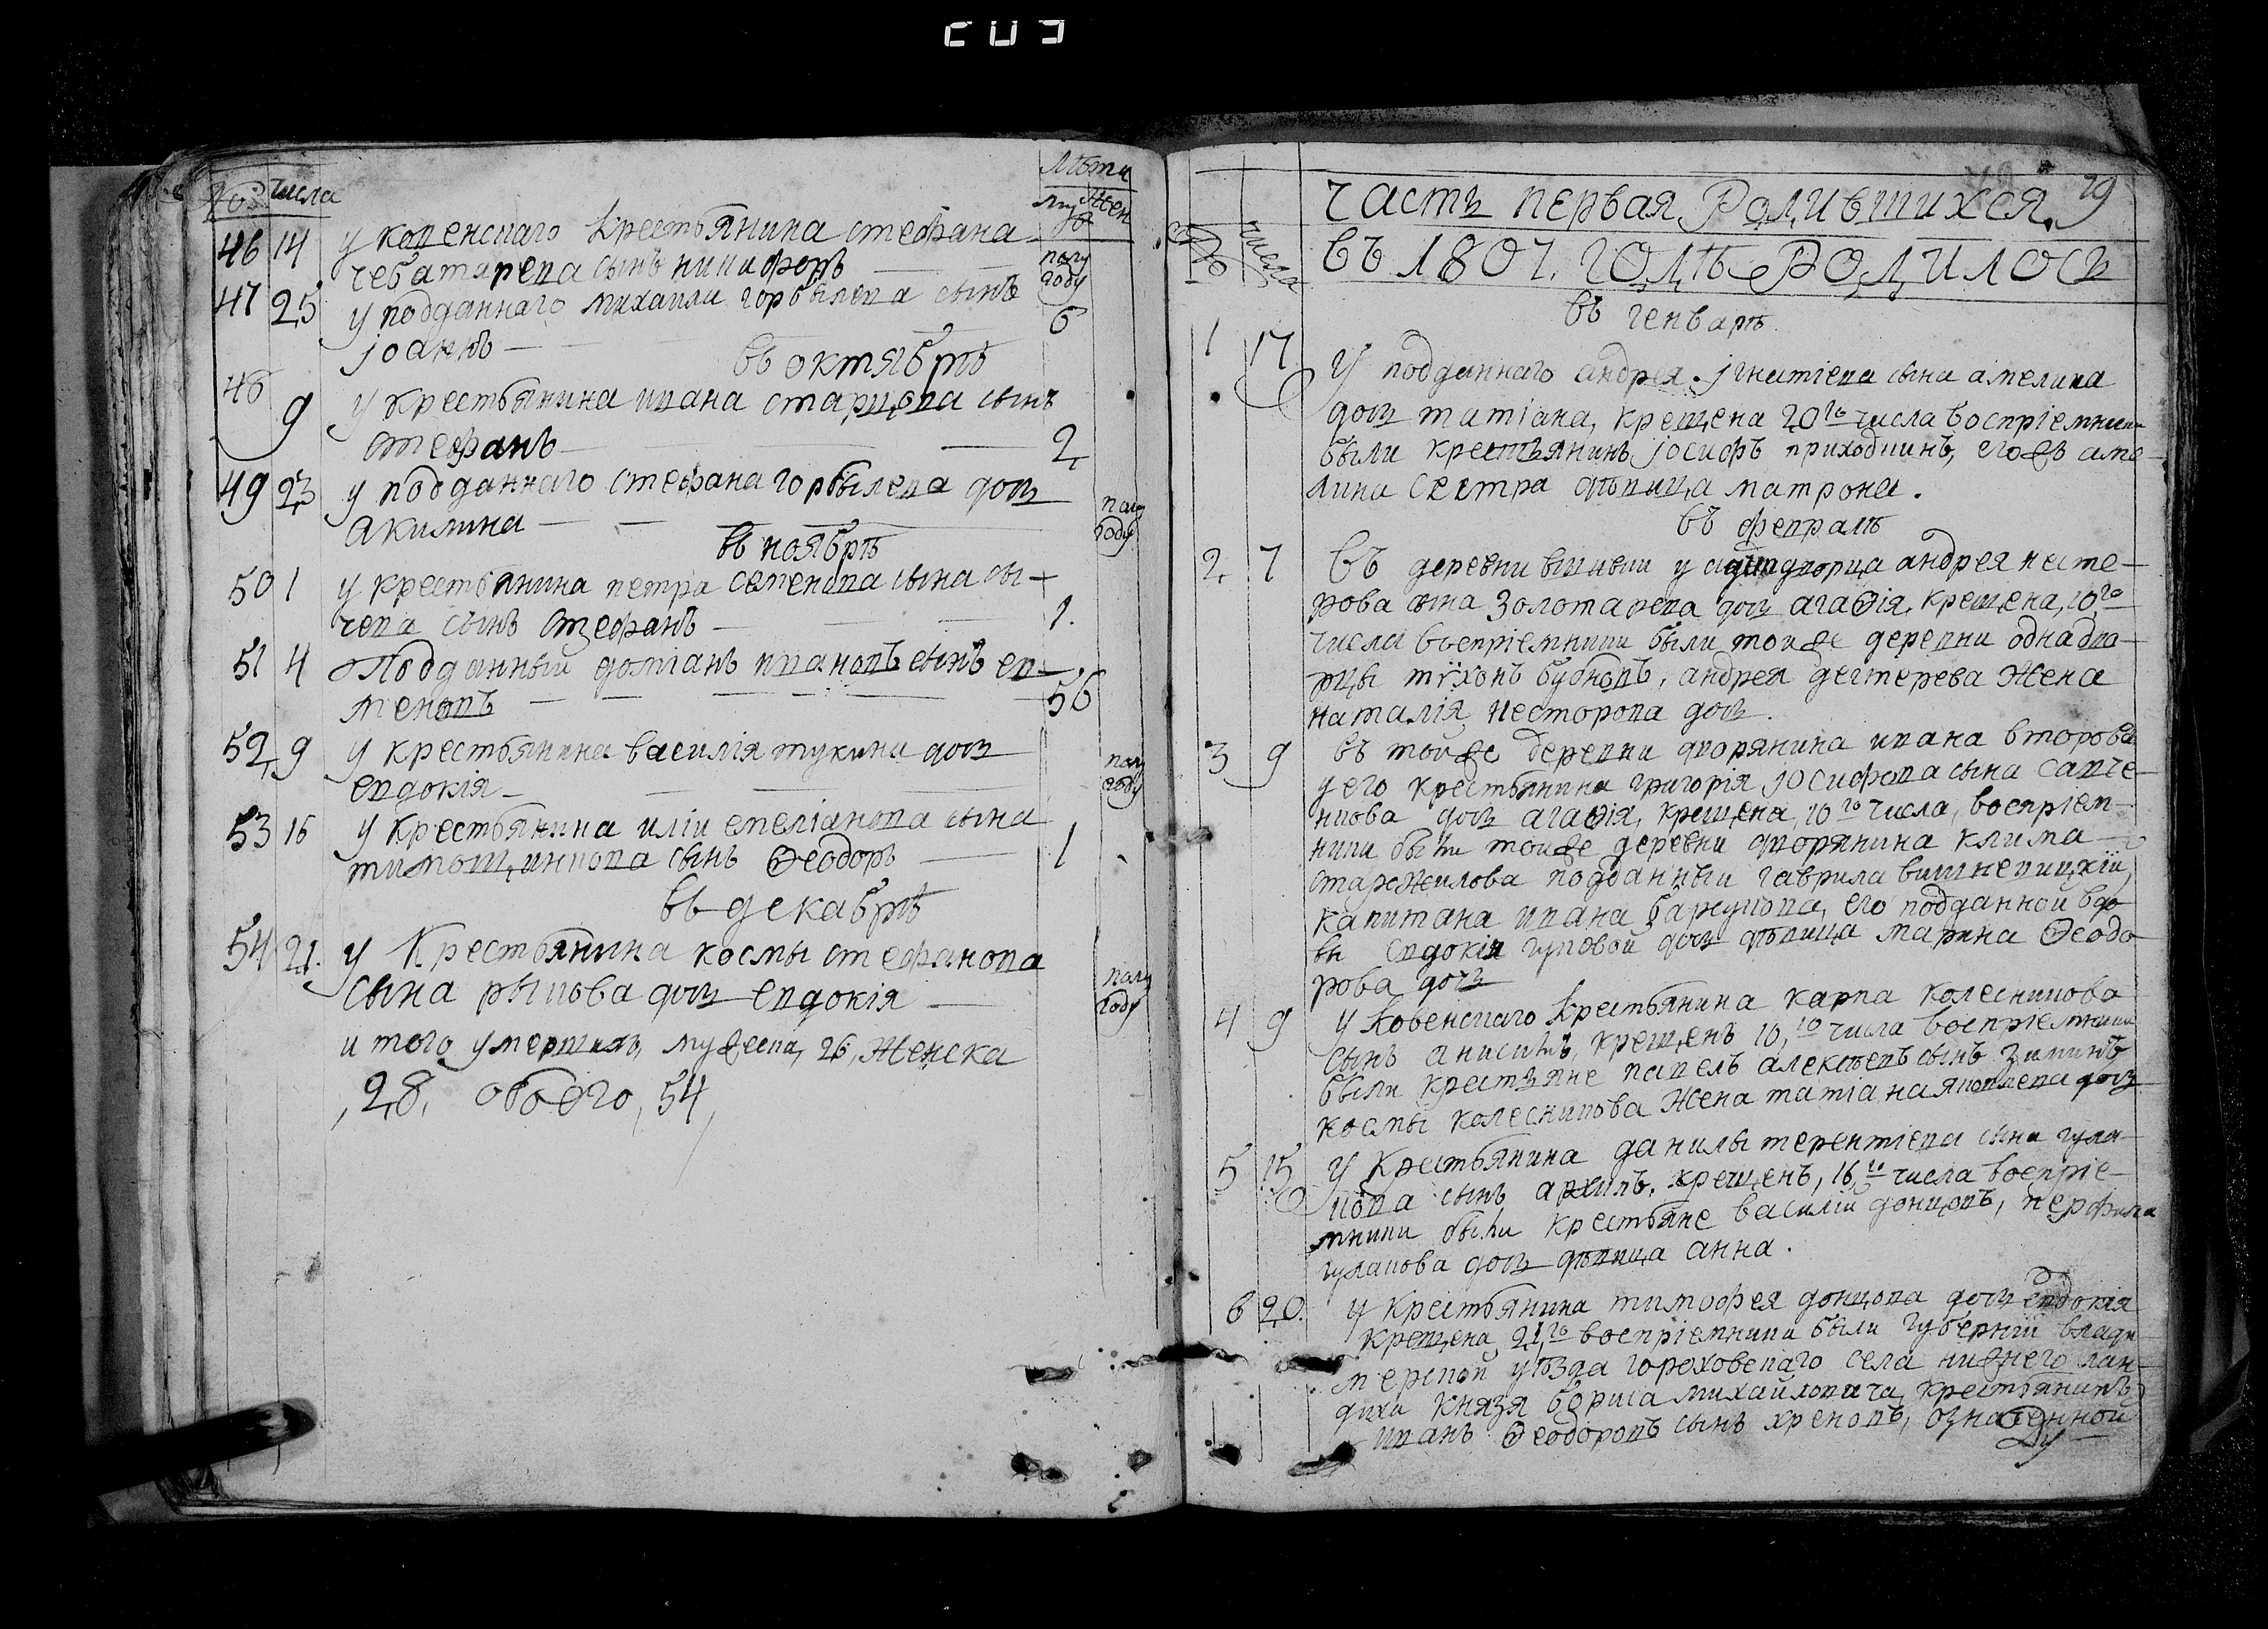 203
№ числа Лѣта
муж Жен
46 14 у ковенскаго крестьянина стефана
чеботарева сынъ никифоръ — полу году
47 25 у подданнаго михаила горбылева сынъ
іоаннъ — 6
въ октябрѣ
48 9 у крестьянина ивана старцова сынъ
стефанъ — 2
49 23 у подданнаго стефана горбылева дочь
акилина — полу году
въ ноябрѣ
50 1 у крестьянина петра семенова сына сы-
чева сынъ стефанъ — 1.
51 4 Подданный доміанъ ивановъ сынъ ев-
меновъ — 56
52 9 у крестьянина василія тукина дочь
евдокія — полу году
53 16 у крестьянина иліи емеліанова сына
тимощинкова сынъ Ѳеодоръ — 1
въ декабрѣ
54 21. у Крестьянина космы стефанова
сына рыкова дочь евдокія — полу году
итого умершихъ, мужеска, 26, Женска
, 28, обоего, 54,
часть первая Родившихся. 79
№ числа въ 1807. годѣ Родилось
въ генварѣ
1 17 У подданнаго андрея игнатіева сына амелина
дочь татіана, крещена 20го числа воспріемники
были крестьянинъ іосифъ приходкинъ, егожъ аме-
лина сестра дѣвица матрона.
въ февралѣ
2 7 Въ деревни вшивки у однодворца андрея несте-
рова сына золотарева дочь агаѳія, крещена, 10го
числа воспріемники были тойже деревни однадво-
рцы тѵхонъ бубновъ, андрея дегтерева Жена
наталія несторова дочь.
3 9 въ тойже деревни дворянина ивана второва
у его крестьянина григорія іосифова сына савче-
нкова дочь агаѳія, крещена, 10го числа, воспріем-
ники были тойже деревни дворянина клима
старжилова подданный гаврила вишневицкій,
капитана ивана его подданной вдо-
вы евдокіи гуковой дочь дѣвица марина Ѳеодо-
рова дочь
4 9 у ковенскаго крестьянина карпа колесникова
сынъ анисимъ, крещенъ 10,го числа воспріемники
были крестьяне павелъ алексѣевъ сынъ зиминъ
космы колесникова Жена татіана яковлева дочь
5 15 У крестьянина данилы терентіева сына гула-
кова сынъ архипъ, крещенъ, 16,го числа воспріе-
мники были крестьяне василій донцовъ, перфила
гулакова дочь дѣвица анна.
6 20. у крестьянина тимофея донцова дочь евдокія
крещена, 21,го воспріемники были губерніи влади-
мерской уѣзда гороховецкаго села нижнего лан-
диха князя бориса михайловича, крестьянинъ
иванъ Ѳеодоровъ сынъ хреновъ, означенной